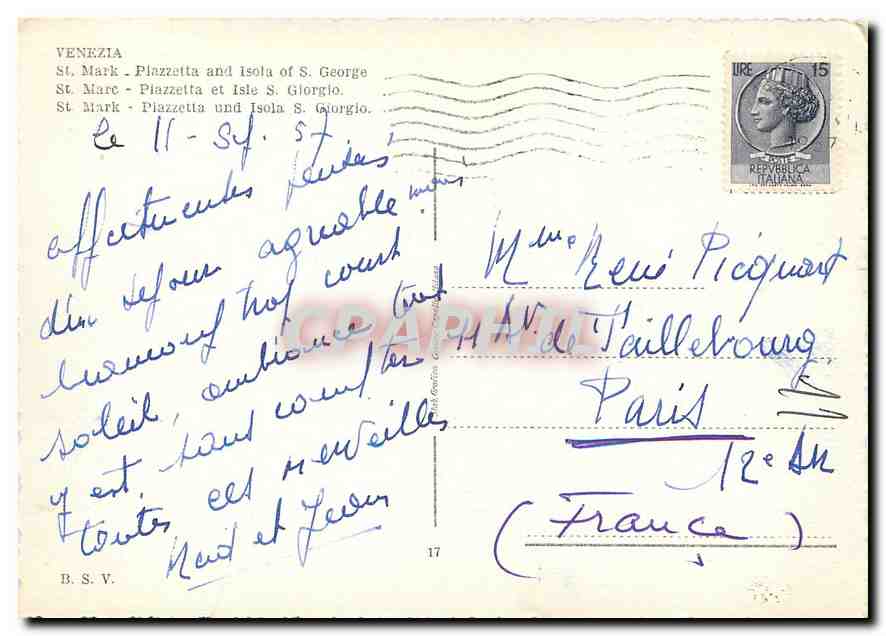 VENEZIA
St. Mark - Piazzetta and Isola of S. George
St. Marc - Piazzetta et Isle S. Giorgio.
St. Mark - Piazzetta und Isola S. Giorgio.
LIRE 15
POSTE
REPVBBLICA
ITALIANA
le 11 - Sep. 57
affectueuses pensées
d'un séjour agréable mais
beaucoup trop court
soleil, ambiance tout
y est, sans compter
toutes ces merveilles
et Jean
Mme René Picquart
11 Av. de Taillebourg
Paris
12e Arr
(France)
CPAPHIL
17
B. S. V.